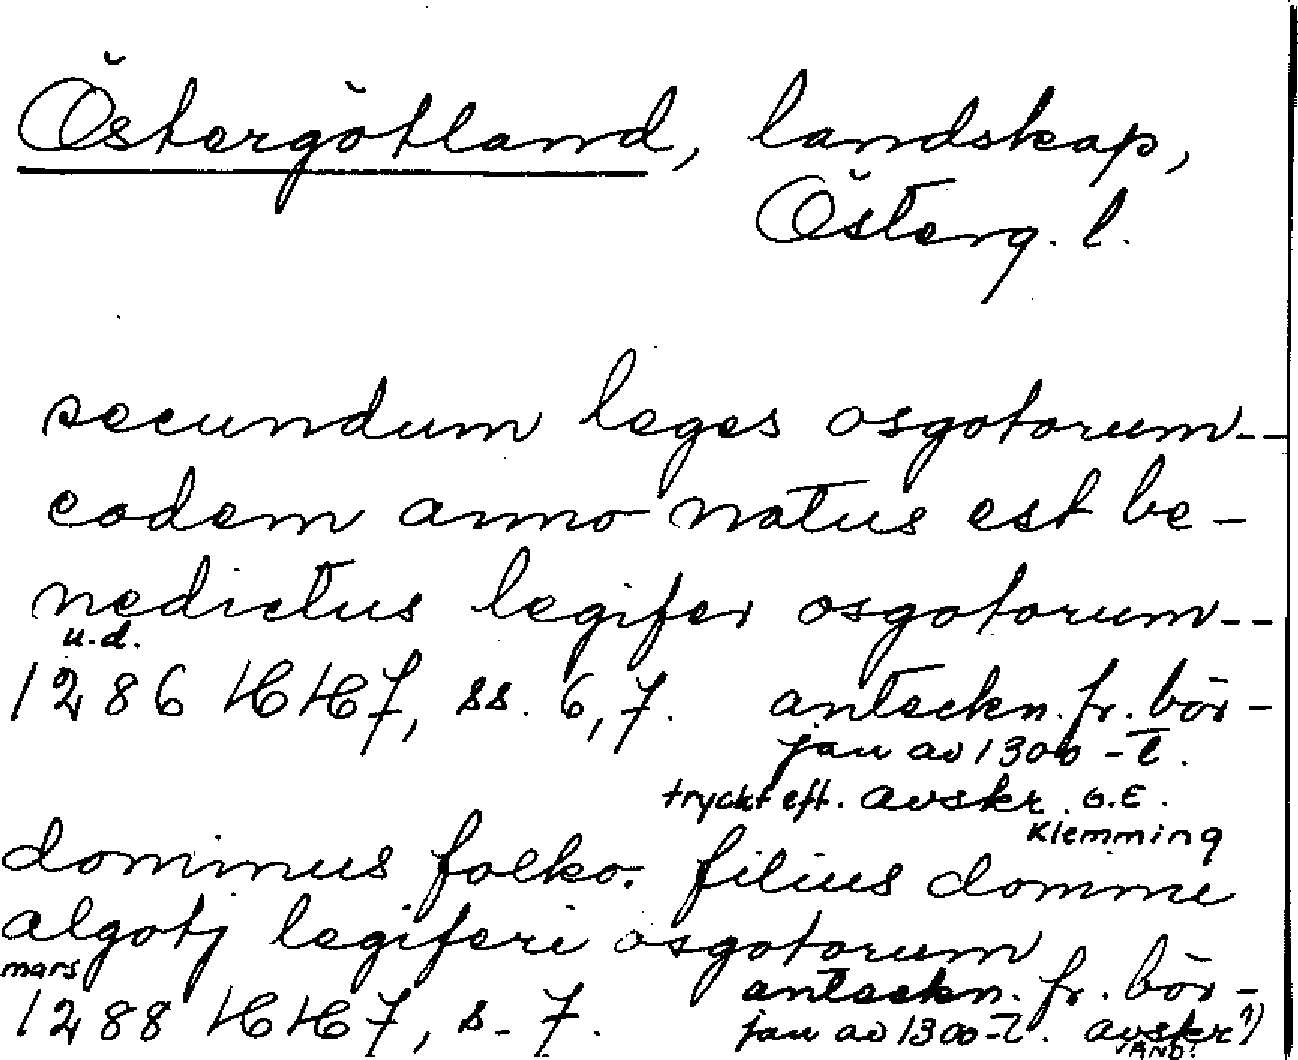 Östergötland, landskap,
Österg. l.
secundum leges osgotorum--
eodem anno natus est be-
nedictus legifer osgotorum--
u.d.
1286 HH7, ss. 6,7. anteckn. fr. bör-
jan av 1300-t.
tryckt eft. avskr. G.E.
Klemming
dominus folko. filius domini
algotj legiferi osgotorum
mars
1288 HH7, s. 7. anteckn. fr. bör-
jan av 1300-t. avskr 1)
VÄND!